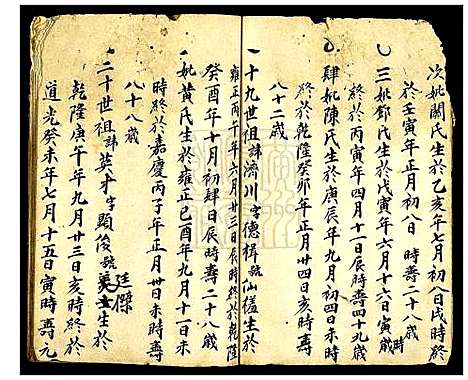 次妣關氏生於乙亥年七月初八日戌時終
於壬寅年正月初八日 時壽二十八歲
三妣鄧氏生於戊寅年六月十六日寅時
終於丙寅年四月十一日辰時壽四十九歲
肆妣陳氏生於庚辰年九月初四日未時
終於乾隆癸卯年正月廿四日亥時壽
八十二歲
一十九世祖諱濟川字德楫號仙槎生於
雍正丙午年六月廿三日辰時終於乾隆
癸酉年十月初肆日辰時壽二十八歲
一妣黃氏生於雍正己酉年九月十一日未
時終於嘉慶丙子年正月廿日未時壽
八十八歲
二十世祖諱英才字顯俊號廷傑生於
乾隆庚午年九月廿三日亥時終於
道光癸未年七月十五日寅時壽元